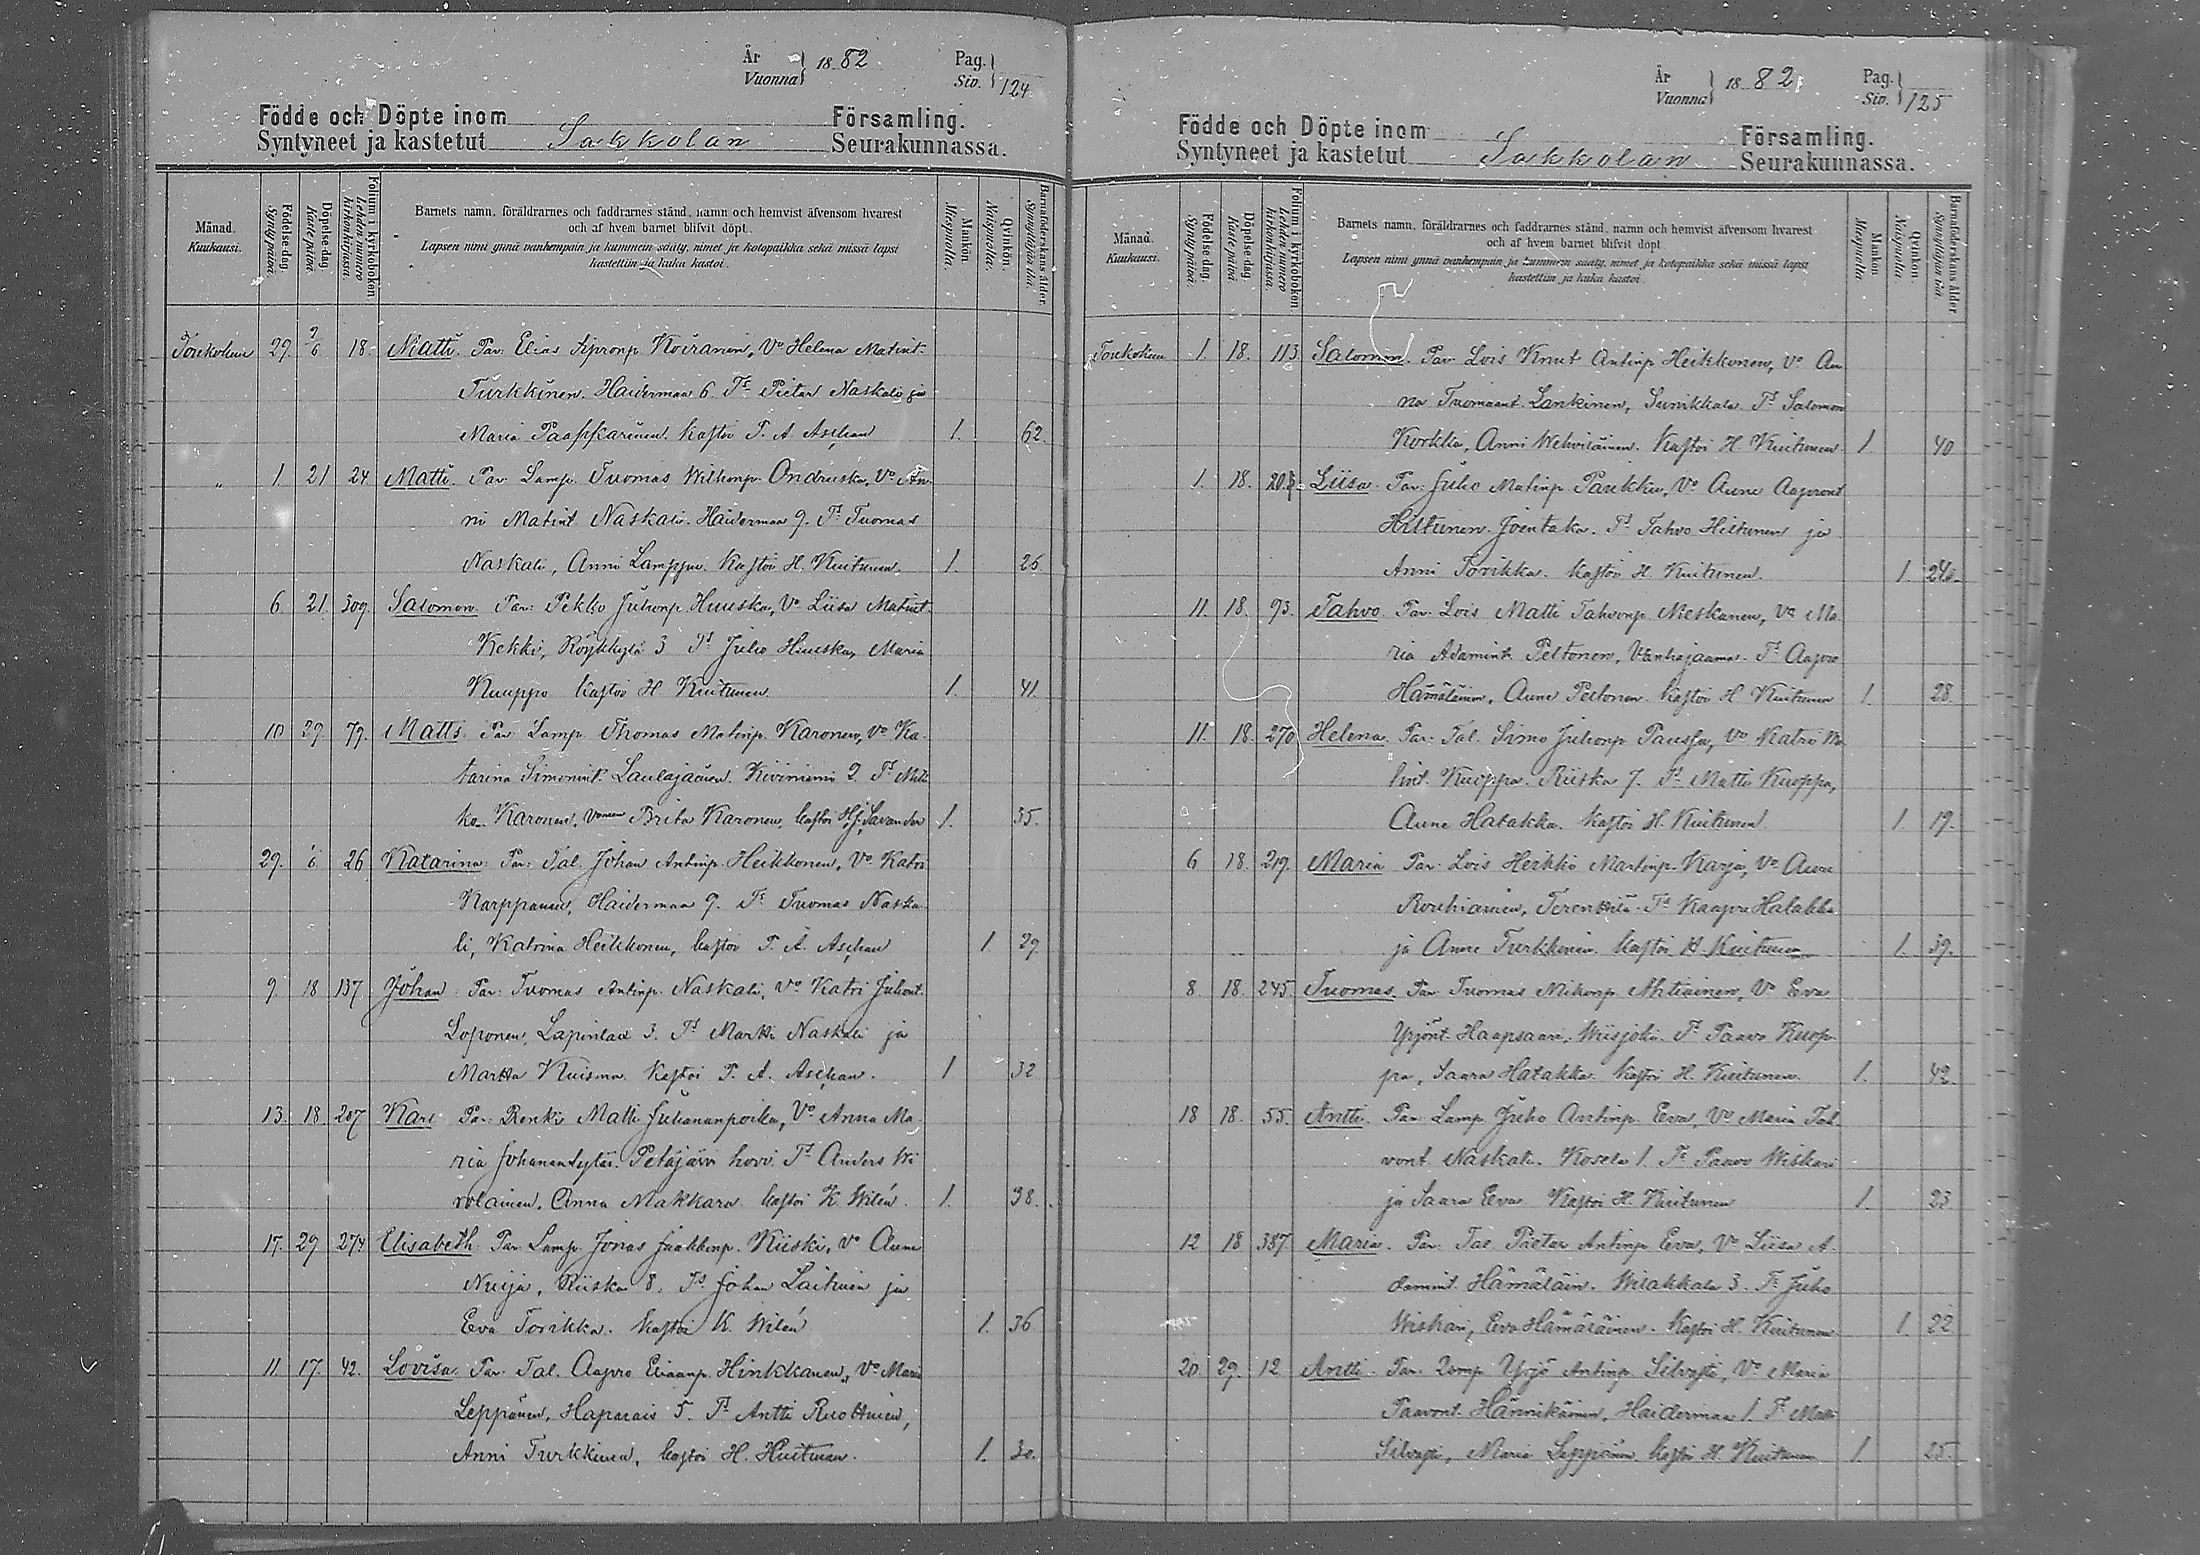 År
Vuonna 1882.
Pag.
Siv. 124
Födde och Döpte inom
Syntyneet ja kastetut Sakkolan
Församling.
Seurakunnassa.
Månad.
Kuukausi.
Födelse-dag.
Syntypäivä.
Döpelse-dag
Kastepäivä.
Folium i kyrkoboken
Lehden numero
kirkonkirjassa.
Barnets namn, föräldrarnes och faddrarnes stånd, namn och hemvist äfvensom hvarest
och af hvem barnet blifvit döpt.
Lapsen nimi ynnä vanhempain ja kummein sääty, nimet ja kotopaikka sekä missä lapsi
kastettiin ja kuka kastoi.
Mankön.
Miespuolia.
Qvinkön.
Naispuolia.
Barnaföderskans ålder.
Synnyttäjän ikä.
Toukokuu 29. 2/6 18. Matti. Par. Elias Sipronp. Koiranen, Vo Helena Matint.
Turkkinen. Haidermaa 6. Ts Pietar Naskali ja
Maria Paapkarinen. Kastoi P. A. Aschan 1. 62.
" 1 21 24 Matti. Par. Lamp. Tuomas Wilhonp. Ondruska, Vo An-
ni Matint Naskali. Haidermaa 9. Ts Tuomas
Naskali, Anni Lamppu. Kastoi H. Kuitunen. 1. 26
6. 21. 309. Salomon. Par: Pekko Juhonp Huuska, Vo Liisa Matint.
Kekki, Röykkylä 3 Ts Juho Huuska, Maria
Kuuppo Kastoi H. Kuitunen. 1. 41.
10 29. 79. Matts. Par. Lamp. Thomas Matinp. Karonen, Vo Ka-
tarina Simonint. Laulajainen. Kiviniemi 2. Ts
Karonen, Brita Karonen, kastoi H.J. Savander 1. 35.
29. 6. 26 Katarina. Par: Tal. Johan Antinp. Heikkonen, Vo Katri
Karppanen, Haidermaa 9. Ts Tuomas Naska-
li, Katrina Heikkonen, kastoi P. A. Aschan 1. 29.
9. 18 137 Johan. Par: Tuomas Antinp. Naskali, Vo Katri Juhont.
Loponen, Lapinlax 3. Ts Martti Naskali ja
Martta Kuisma. Kastoi P. A. Aschan. 1 32
13. 18. 207 Karl. Par. Renki Matti Juhananpoika, Vo Anna Ma-
ria Johanantytär. Petäjärvi hovi. Ts Anders Wi-
rolainen. Anna Makkara. Kastoi K. Wilén. 1. 38.
17. 29 274 Elisabeth. Par Lamp. Jonas Jaakkonp. Kiiski, Vo Anna
Nuija, Riiska 8. Ts Johan Laitinen ja
Eva Torikka. Kastoi K. Wilén 1. 36
11. 17. 42. Lovisa. Par. Tal. Aapro Eliaanp. Hinkkanen, Vo Maria
Leppänen, Haparais 5. Ts Antti Ruottinen,
Anni Turkkinen, kastoi H. Kuitunen. 1. 30.
År
Vuonna 1882.
Pag.
Siv. 125
Födde och Döpte inom
Syntyneet ja kastetut Sakkolan
Församling.
Seurakunnassa.
Månad.
Kuukausi.
Födelse-dag.
Syntypäivä.
Döpelse-dag
Kastepäivä.
Folium i kyrkoboken
Lehden numero
kirkonkirjassa.
Barnets namn, föräldrarnes och faddrarnes stånd, namn och hemvist äfvensom hvarest
och af hvem barnet blifvit döpt.
Lapsen nimi ynnä vanhempain ja kummein sääty, nimet ja kotopaikka sekä missä lapsi
kastettiin ja kuka kastoi.
Mankön.
Miespuolia.
Qvinkön.
Naispuolia.
Barnaföderskans ålder.
Synnyttäjän ikä.
Toukokuu 1. 18. 113. Salomon. Par. Lois Knut Antinp Heikkonen, Vo An-
na Tuomaant. Lankinen, Sunikkala. Ts Salomon
Korkka, Anni Wehviläinen. Kastoi H. Kuitunen 1 40
1. 18. Liisa. Par. Juho Matinp Paukku, Vo Anna Aapront
Hiltunen. Joentaka. Ts Tahvo Hiltunen ja
Anni Torikka. Kastoi H. Kuitunen. 1.
11. 18. 93. Tahvo. Par. Lois Matti Tahvonp Nieskanen, Vo Ma-
ria Adamint. Peltonen, Vanhajaama. Ts Aapro
Hämäläinen, Anna Peltonen. Kastoi H Kuitunen 1. 28.
11. 18. 270 Helena. Par: Tal. Simo Juhonp Paussu, Vo Katri Ma-
tint. Kuoppa. Riiska 7. Ts Matti Kuoppa,
Anna Hatakka. Kastoi H. Kuitunen. 1. 19.
6 18. 219. Maria. Par. Lois Heikki Martinp. Karja, Vo Anna
Rouhiainen, Terenttilä. Ts Kaapro Hatakka
ja Anna Turkkinen. Kastoi H. Kuitunen 1. 39.
8. 18. 245. Tuomas. Par. Tuomas Mikonp Ahtiainen, Vo Eva
Yrjönt. Haapsaari, Wiisjoki. Ts Paavo Kuop-
pa, Saara Hatakka. Kastoi H. Kuitunen. 1. 42
18 18. 55. Antti. Par. Lamp Juho Antinp. Eva, Vo Maria Tah-
vont. Naskali. Kosela 1. Ts Paavo Wiskari
ja Saara Eva. Kastoi H. Kuitunen 1. 23
12 18 387. Maria. Par. Tal. Pietar Antinp Eva, Vo Liisa A-
damint. Hämäläin. Wilakkala 3. Ts Juho
Wiskari, Eva Hämäläinen. Kastoi H. Kuitunen 1. 22
20. 29. 12 Antti. Par. Lamp Yrjö Antinp Silvasti, Vo Maria
Paavont. Hännikäinen, Haidermaa 1. Ts Matti
Silvasti, Maria Leppänen kastoi H. Kuitunen 1. 25.